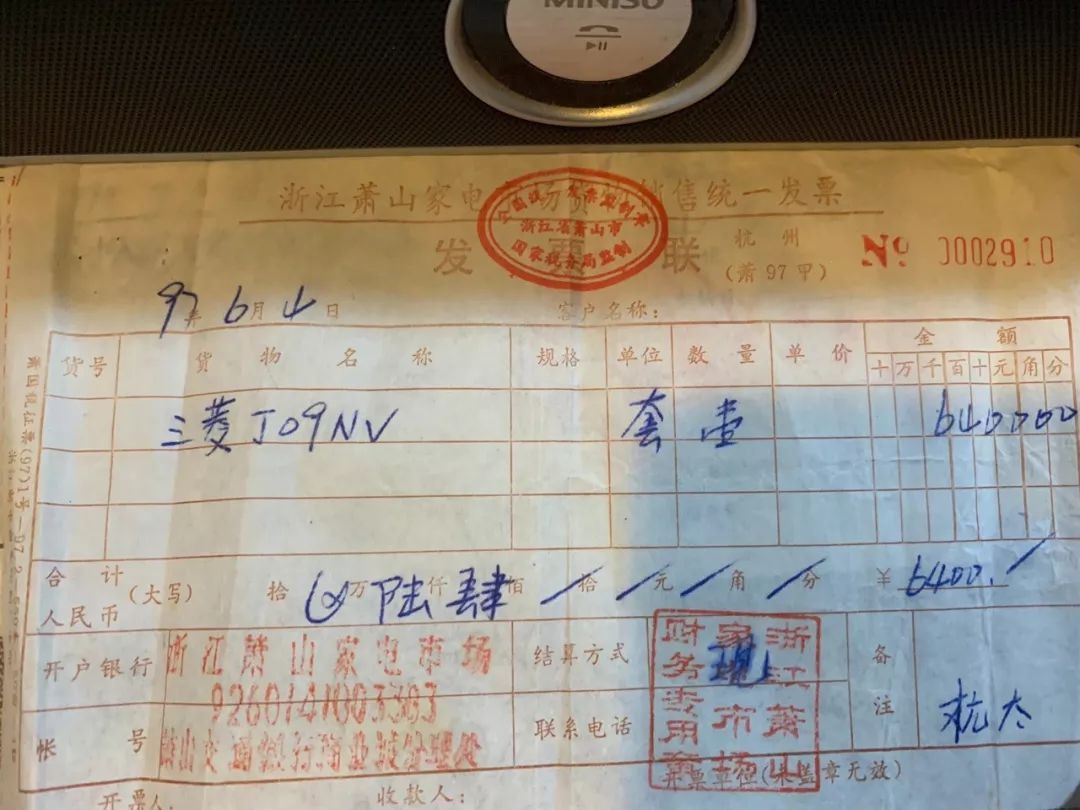 MINISO
浙江萧山家电市场货物销售统一发票
全国统一发票监制章
浙江省萧山市
国家税务局监制
发票联
杭州
(萧97甲)
№ 0002910
97年6月4日
客户名称:
货号 货物名称 规格 单位 数量 单价 金额
十万千百十元角分
三菱J09NV 套 壹 640000
合计
人民币
(大写) 拾 ⊗万陆仟肆佰/拾/元/角/分 ¥6400./
开户银行 浙江萧山家电市场
9260141003303
帐号
结算方式
联系电话
浙江萧山
家电市场
财务专用章
备注 杭大
开票单位(未盖章无效)
开票人: 收款人: